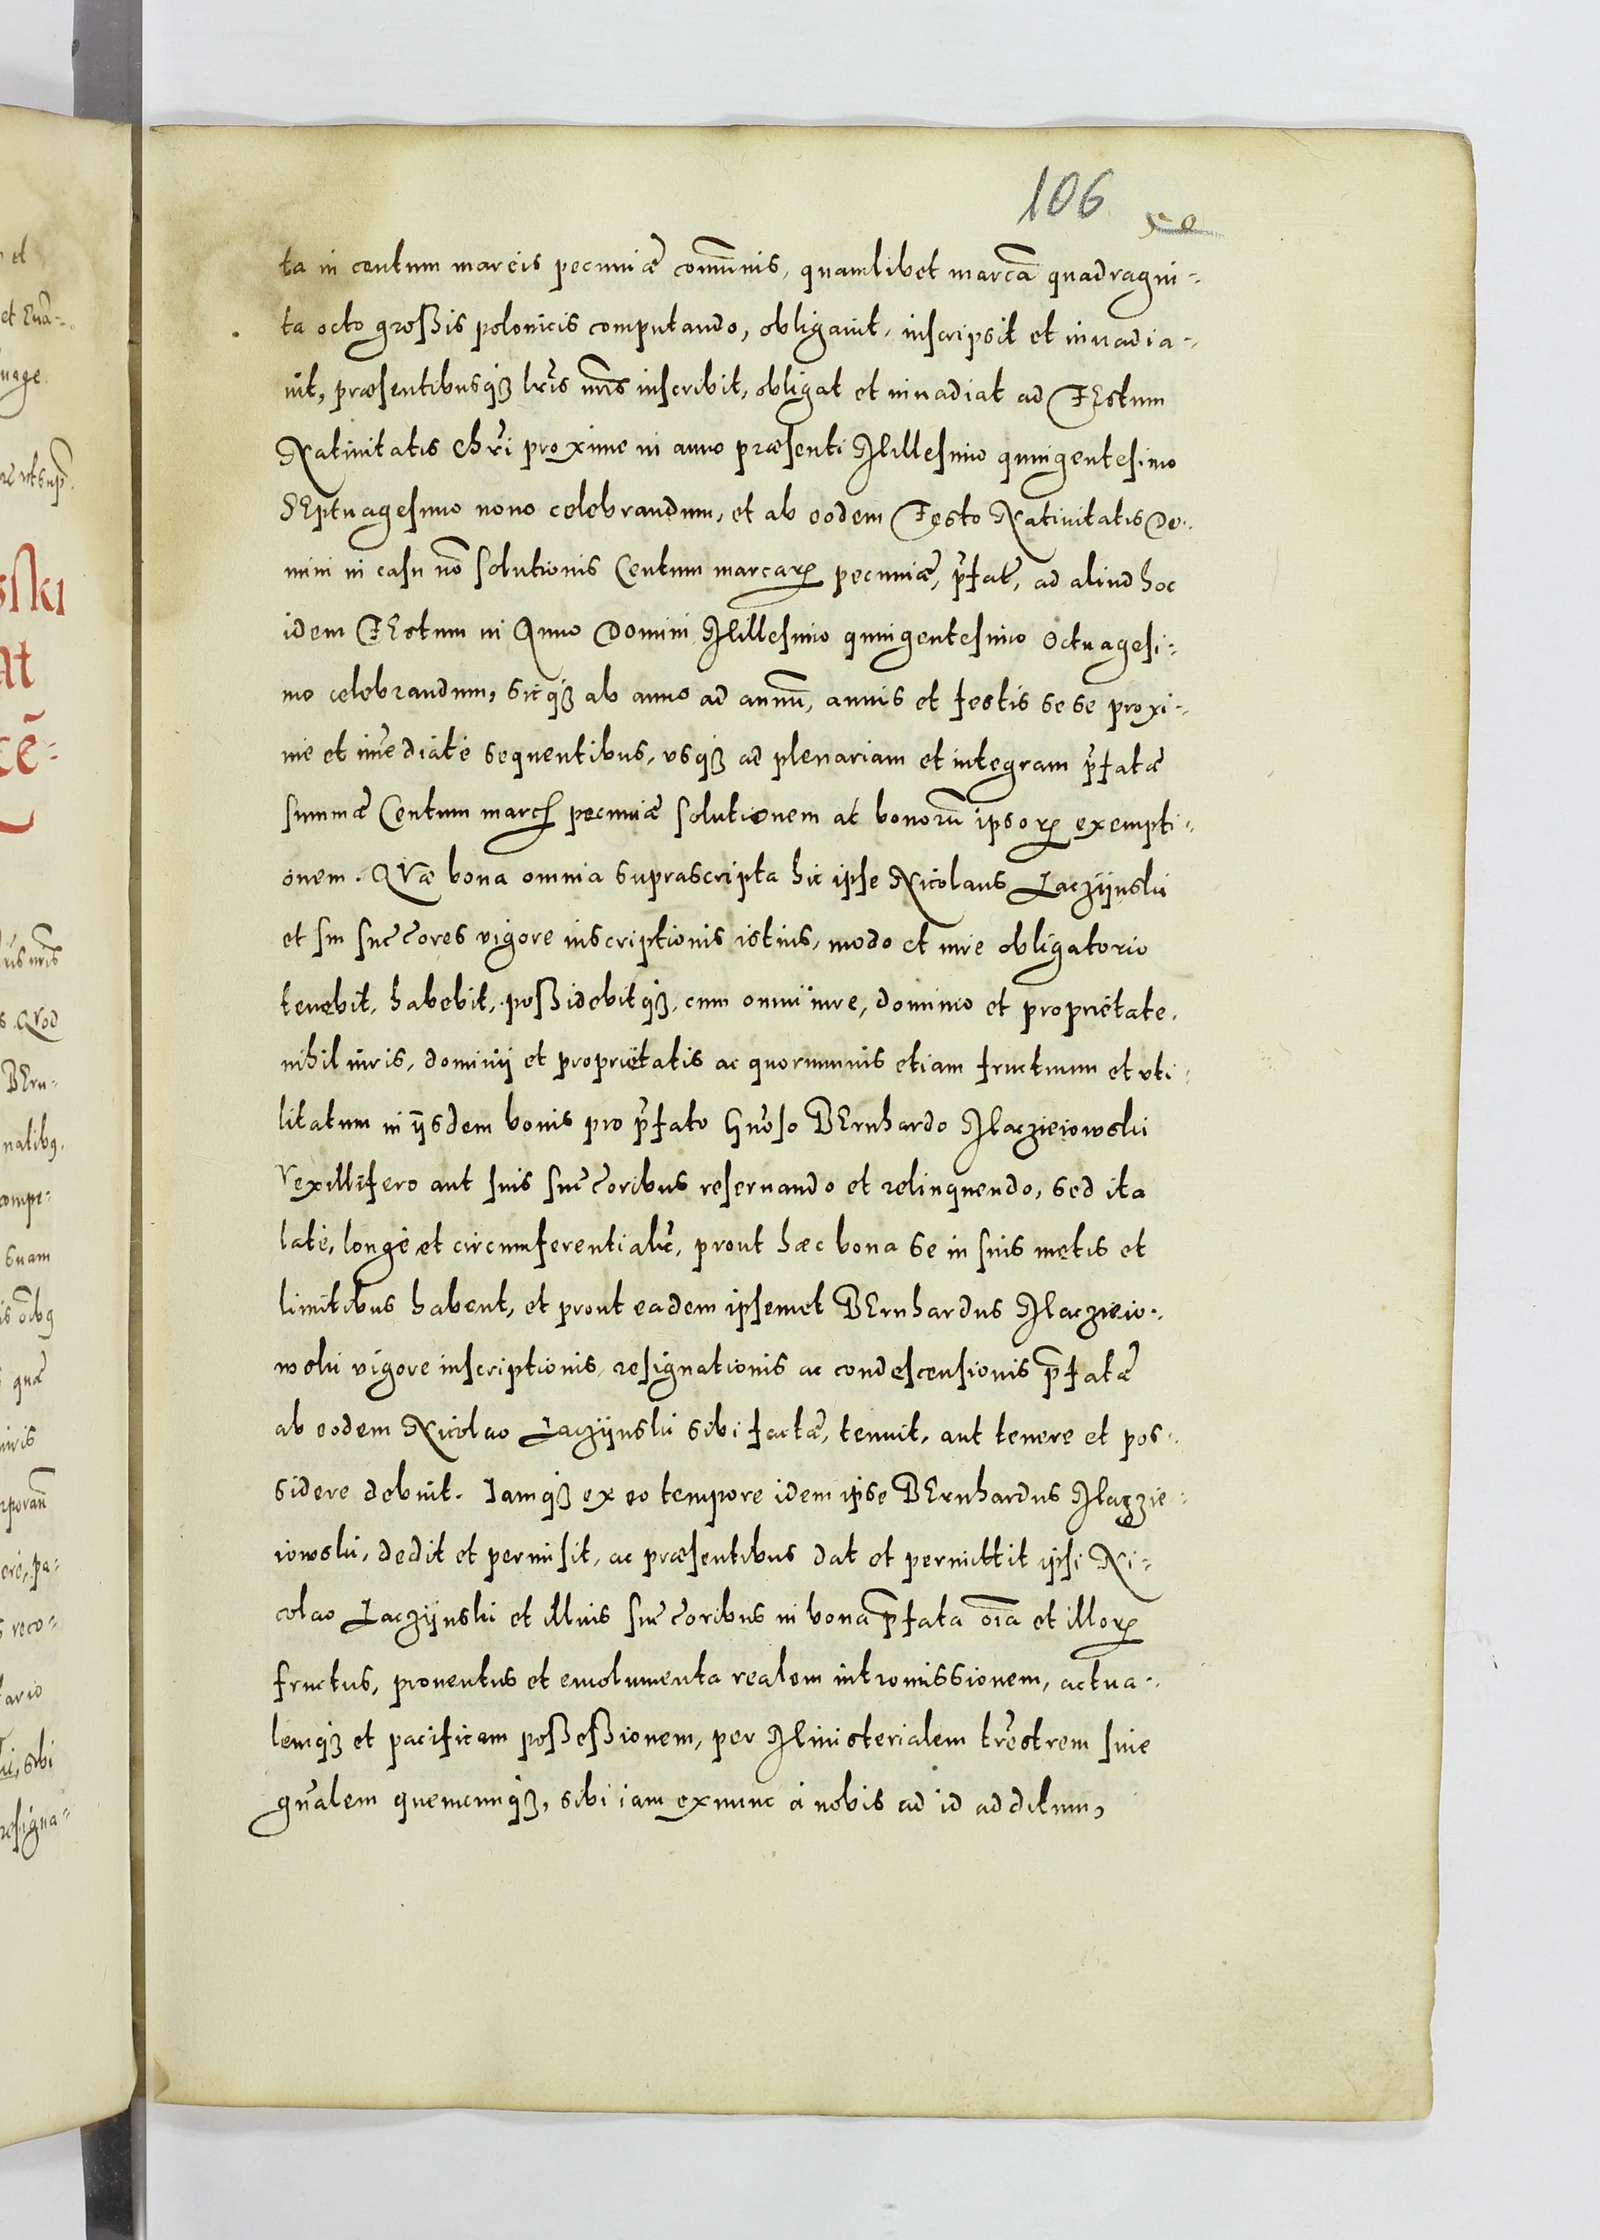 106
50
ta in centum marcis pecuniæ com̃unis, quamlibet marcã quadragin-
ta octo großis polonicis computando, obligauit, inscripsit et inuadia-
uit, præsentibusq₃ lrĩs nr̃is inscribit, obligat et inuadiat ad FEstum
Natiuitatis Chrĩ proxime in anno præsenti Millesimo quingentesimo
SEptuagesimo nono celebrandum, et ab eodem Festo Natiuitatis Do-
mini in casu nõ solutionis Centum marcarꝝ pecuniæ, p̃fatæ, ad aliud hoc
idem FEstum in Anno Domini Millesimo quingentesimo Octuagesi-
mo celebrandum, sicq₃ ab anno ad annũ, annis et festis sese proxi-
me et im̃ediatè sequentibus, vsq₃ ad plenariam et integram p̃fatæ
summæ Centum marcꝝ pecuniæ solutionem at bonorũ ipsorꝝ exempti-
onem. QVæ bona omnia suprascripta hic ipse Nicolaus Łaczÿnski
et sui succ̃ores vigore inscriptionis istius, modo et iure obligatorio
tenebit, habebit, poßidebitq₃, cum omni iure, dominio et proprietate,
nihil iuris, dominij et proprietatis ac quorumuis etiam fructuum et vti-
litatum in ijsdem bonis pro p̃fato Gñoso BErnhardo Maczieiowski
Vexillifero aut suis succ̃oribus reseruando et relinquendo, sed ita
latè, longè et circumferentialr̃, prout hæc bona se in suis metis et
limitibus habent, et prout eadem ipsemet BErnhardus Maczieio-
wski vigore inscriptionis, resignationis ac condescensionis p̃fatæ
ab eodem Nicolao Łaczÿnski sibi factæ, tenuit, aut tenere et pos-
sidere debuit. Iamq₃ ex eo tempore idem ipse BErnhardus Maczie-
iowski, dedit et permisit, ac præsentibus dat et permittit ipsi Ni-
colao Łaczÿnski et illius succ̃oribus in bona p̃fata oĩa et illorꝝ
fructus, prouentus et emolumenta realem intromissionem, actua-
lemq₃ et pacificam poßeßionem, per Ministerialem trr̃estrem siue
gnãlem quemcunq₃, sibi iam exnunc à nobis ad id additum,